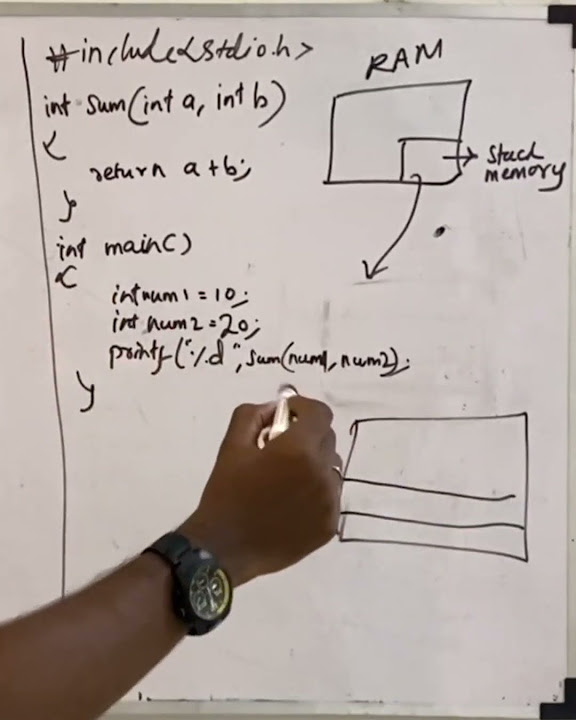 #include<stdio.h>
int sum(int a, int b)
{
return a+b;
}
int main()
{
int num1 = 10;
int num2 = 20;
printf("%d", sum(num1, num2);
}
RAM
stack
memory